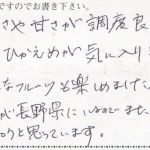 ですのでお書き下さい。
さや甘さが調度良
ひかえめが気に入り
なフルーツも楽しめました。
が長野県に
と思っています。